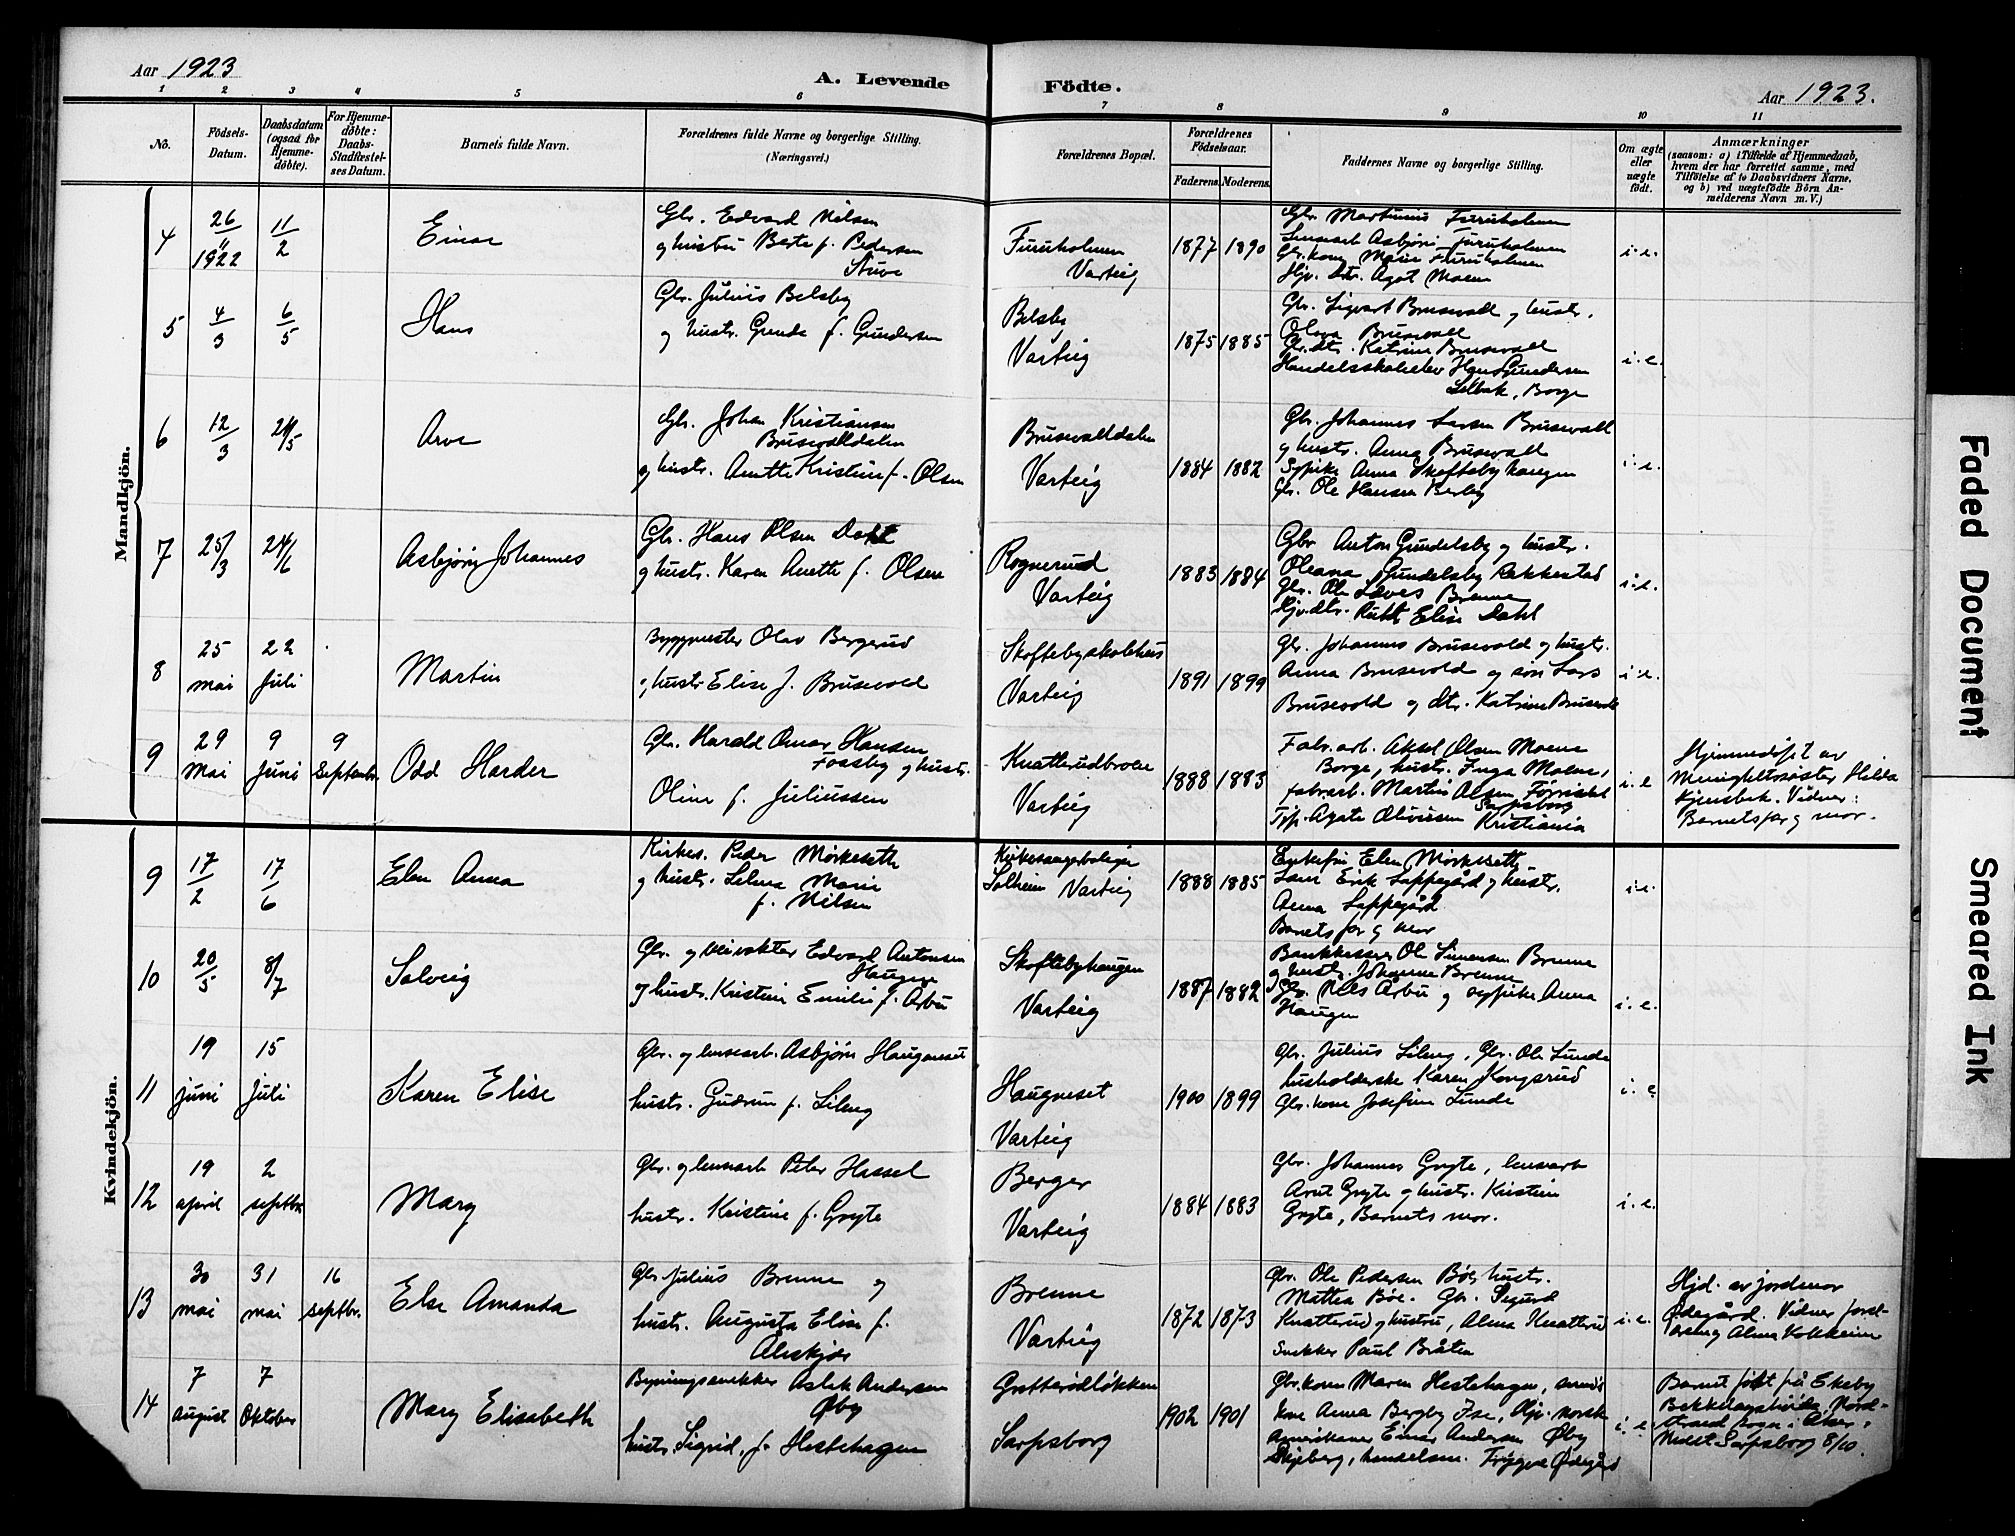 Aar 1923
A. Levende
Födte.
Aar 1923.
1 2 3 4 5 6 7 8 9 10 11
No.
Födsels-Datum.
Daabsdatum (ogsaa for Hjemme-döbte).
For Hjemme-döbte: Daabs-Stadfæstel-ses Datum.
Barnets fulde Navn.
Forældrenes fulde Navne og borgerlige Stilling.
(Næringsvei.)
Forældrenes Bopæl.
Forældrenes Födselsaar.
Faderens. Moderens.
Faddernes Navne og borgerlige Stilling.
Om ægte eller uægte födt.
Anmærkninger
(saasom: a) i Tilfælde af Hjemmedaab,
hvem der har forrettet samme, med
Tilföielse af to Daabsvidners Navne,
og b) ved uægtefödte Börn An-
melderens Navn m. V.)
Mandkjön.
4 26/11 1922 11/2 Einar
Gbr. Edvard Nilsen
og hustru Berte f. Pedersen
Furuholmen
Varteig
1877 1890
Gbr. Martinius Furuholmen
Asbjörn Furuholmen
Gbr. kone Marie Furuholmen
Hjv. dtr. Agot Moen
i.e.
5 4/3 6/5 Hans
Gbr. Julius Belsby
og hustr. Gunda f. Gundersen
Belsby
Varteig
1875 1885
Gbr. Sigvart Brusevall og hustr.
Olava Brusevall
Gbr. dtr. Katrine Brusevall
Handelsskoleelev Hans Gundersen
Borge
i.e.
6 12/3 21/5 Arve
Gbr. Johan Kristiansen
Brusevalldalen
og hustr. Anette Kristine f. Olsen
Brusevalldalen
Varteig
1884 1882
Gbr. Johannes Larsen Brusevall
og hustr. Anna Brusevall
Sypike Anna Skofteby haugen
Gbr. Ole Hansen Berby
i.e.
7 25/3 24/6 Asbjörn Johannes
Gbr. Hans Olsen Dahl
og hustr. Karen Anette f. Olsen
Rognerud
Varteig
1883 1884
Gbr Anton Gundelsby og hustr.
Oleana Gundelsby Rakkestad
Gbr. Ole Brenne
Hjv. dtr. Ruth Elise Dahl
i.e.
8 25 mai 22 Juli Martin
Byggmester Olav Bergerud
og hustr Elise f. Brusevold
Skoftebyskolehus
Varteig
1891 1899
Gbr. Johannes Brusevold og hustr.
Anna Brusevold og sön Lars
Brusevold og dtr. Katrine Brusevold
i.e.
9 29 Mai 9 Juni 9 Septembr. Odd Harder
Gbr. Harald Omar Hansen
Fossby og hustr.
Oline f. Juliussen
Knatterudbroen
Varteig
1888 1883
Fabr. arb. Aksel Olsen Moene
Borge, hustr. Inga Moene,
fabrarb. Martin Olsen
Sarpsborg
Agate Oliviesen Kristiania
i.e
Hjemmedöpt av
Menighetssöster Hilda
Vidner:
Barnets far og mor.
Kvindekjön.
9 17/2 17/6 Elen Anna
Kirkes. Peder Mörkeseth
og hustr. Selma Marie
f. Nilsen
Kirkesangerbolegen
Solheim Varteig
1888 1885
Enkefru Elen Mörkeseth
Erik Lappegård og hustr.
Anna Lappegård
Barnets far og mor
i.e.
10 20/5 8/7 Solveig
Gbr. og veivokter Edvard Antonsen
Haugen
og hustr. Kristine Emilie f. Årbu
Skoftebyhaugen
Varteig
1887 1882
Bankkasser Ole Simensen Brenne
og hustr. Johanne Brenne
Gbr. Nils Årbu og sypike Anna
Haugen
i.e.
11 19 juni 15 juli Karen Elise
Gbr. og lensearb. Asbjörn Hauganset
hustr. Gudrun f. Lileng
Haugneset
Varteig
1900 1899
Gbr. Julius Lileng, Gbr. Ole Lunde
husholderske Karen Kongsrud
Gbr. kone Josefine Lunde
i.e
12 19 april 2 septbr. Mary
Gbr. og lensearb Peter Hassel
hustr. Kristine f. Gryte
Berger
Varteig
1884 1883
Gbr. Johannes Gryte, lensearb
Arnt Gryte og hustr. Kristine
Gryte, Barnets mor.
i.e.
13 30 mai 31 mai 16 septbr. Else Amanda
Gbr. Julius Brenne og
hustr. Augusta Elise f.
Brenne
Varteig
1872 1873
Gbr. Ole Pedersen Böe, hustr.
Mattea Böe. Gbr. Sigurd
Knatterud og hustru, Alma Knatterud
Snekker Paul Bråten
i.e.
Hjd. av jordmor
Ödegård. Vidner
Alma
14 7 August 7 Oktober Mary Elisabeth
Bygningssnekker Aslak Andersen
Öby
hustr. Sigrid, f. Hestehagen
Grötterödlökken
Sarpsborg
1902 1901
Gbr. kone Maren Hestehagen,
kone Anna Bergby Ise, norsk
Amerikaner Einar Andersen Öby
Skjeberg, handelsm. Trygve Ödegård
i.e.
Barnet födt på Ekeby
Bekkelagshöida, Nord-
strand sogn i Aker.
Sarpsborg 8/10.
Faded Document
Smeared Ink